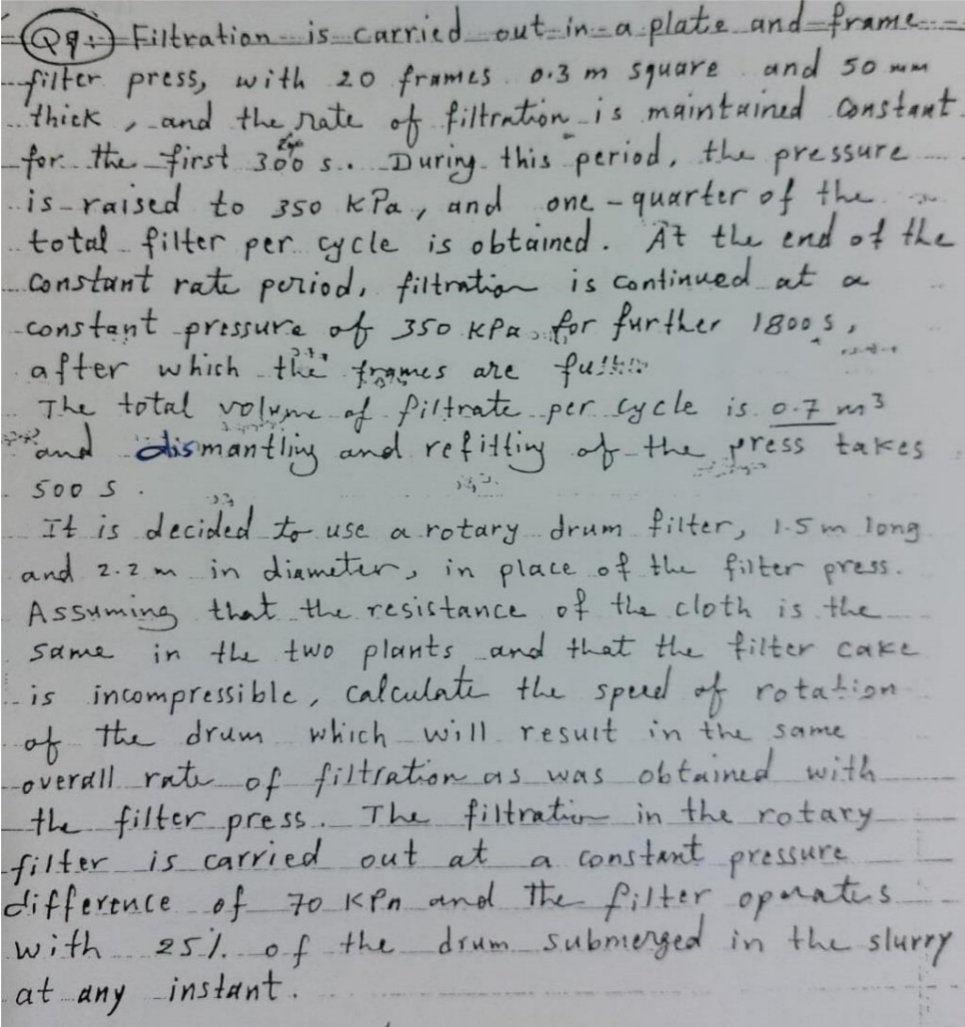 Q9: Filtration is carried out in a plate and frame
filter press, with 20 frames 0.3 m square and 50 mm
thick, and the rate of filtration is maintained constant
for the first 300 s.. During this period, the pressure
is raised to 350 kPa, and one-quarter of the
total filter per cycle is obtained. At the end of the
constant rate period, filtration is continued at a
constant pressure of 350 KPa for further 1800 s,
after which the frames are full
The total volume of filtrate per cycle is 0.7 m³
and dismantling and refitting of the press takes
500 s.
It is decided to use a rotary drum filter, 1.5 m long
and 2.2 m in diameter, in place of the filter press.
Assuming that the resistance of the cloth is the
same in the two plants and that the filter cake
is incompressible, calculate the speed of rotation
of the drum which will result in the same
overall rate of filtration as was obtained with
the filter press. The filtration in the rotary
filter is carried out at a constant pressure
difference of 70 KPa and the filter operates
with 25% of the drum submerged in the slurry
at any instant.